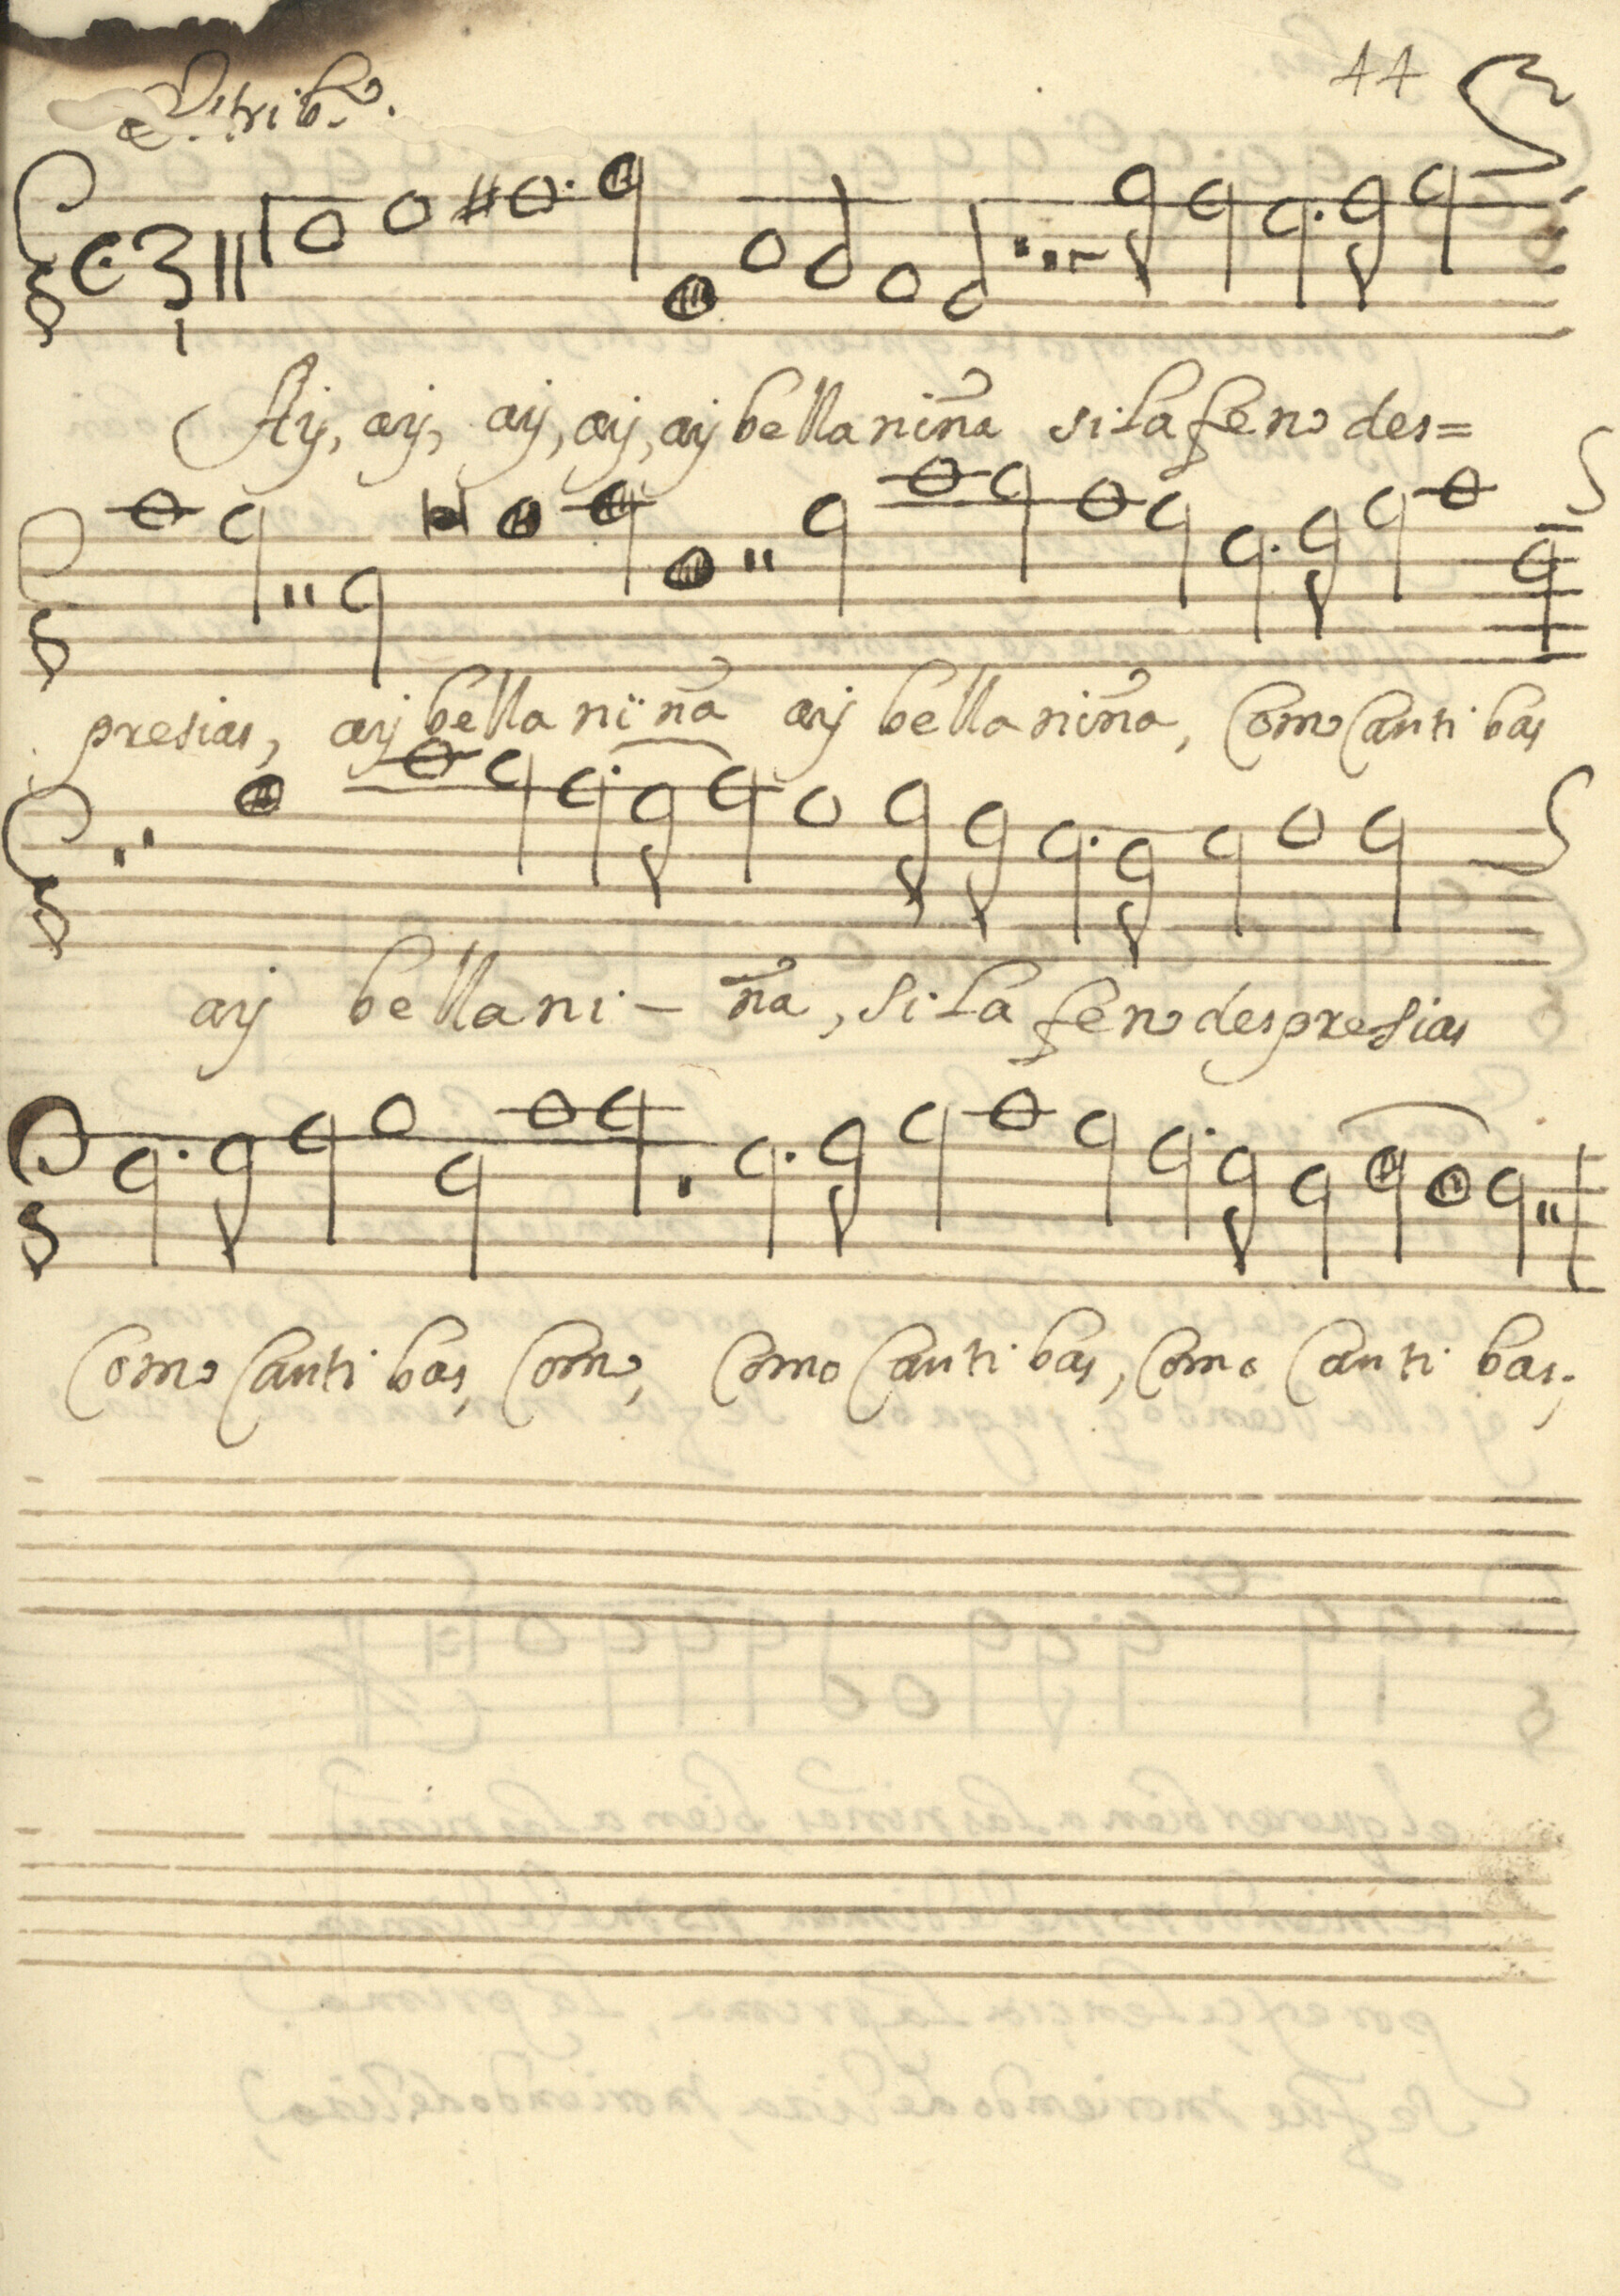 44
Estrib.º
Ay, ay, ay, ay, ay bella niña si la fe no des=
presias, ay bella niña ay bella niña, Como Cautibas
ay bella ni - ña, si la fe no despresias
Como Cautibas, Como, Como Cautibas, Como Cautibas;